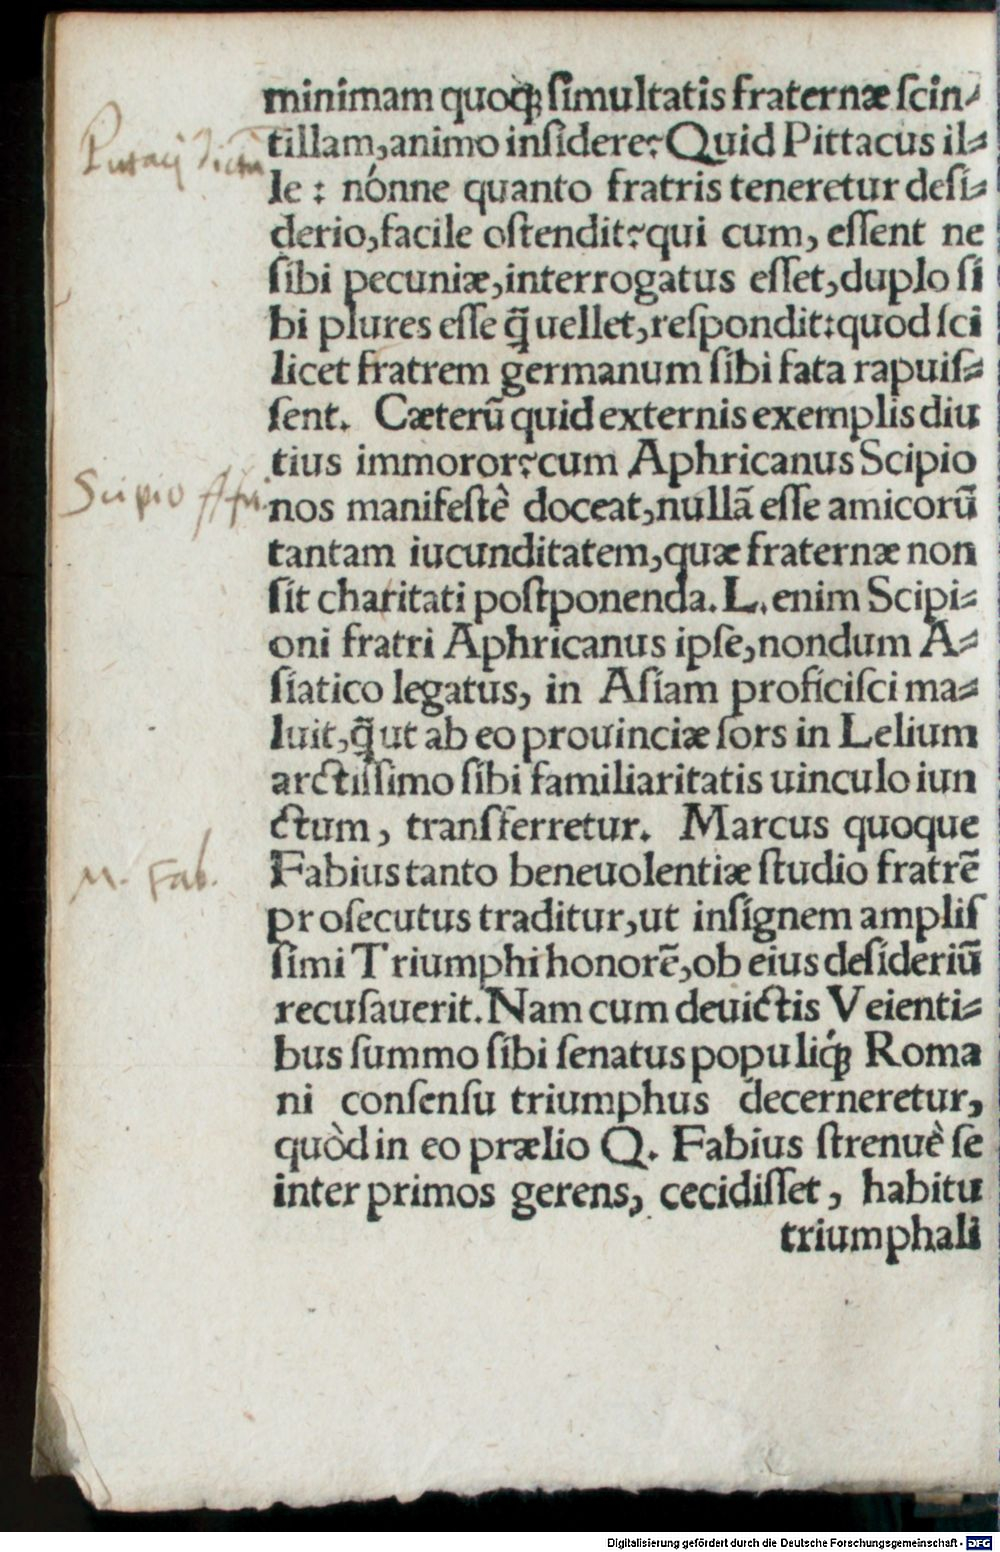 minimam quoq; ſimultatis fraternæ ſcin⸗
tillam, animo inſidere? Quid Pittacus il⸗
le: nónne quanto fratris teneretur deſi⸗
derio, facile oſtendit? qui cum, eſſent ne
ſibi pecuniæ, interrogatus eſſet, duplo ſi
bi plures eſſe q̃ uellet, reſpondit: quod ſci
licet fratrem germanum ſibi fata rapuiſ⸗
ſent. Cæterũ quid externis exemplis diu
tius immoror? cum Aphricanus Scipio
nos manifeſtè doceat, nullã eſſe amicorũ
tantam iucunditatem, quæ fraternæ non
ſit charitati poſtponenda. L. enim Scipi⸗
oni fratri Aphricanus ipſe, nondum A⸗
ſiatico legatus, in Aſiam proficiſci ma⸗
luit, q̃ ut ab eo prouinciæ ſors in Lelium
arctiſſimo ſibi familiaritatis uinculo iun
ctum, transferretur. Marcus quoque
Fabius tanto beneuolentiæ ſtudio fratrẽ
proſecutus traditur, ut inſignem ampliſ
ſimi Triumphi honorẽ, ob eius deſideriũ
recuſauerit. Nam cum deuictis Veienti⸗
bus ſummo ſibi ſenatus populiq́; Roma
ni conſenſu triumphus decerneretur,
quòd in eo prælio Q. Fabius ſtrenuè ſe
inter primos gerens, cecidiſſet, habitu
triumphali
Scipio Afri.
M. Fab.
Digitalisierung gefördert durch die Deutsche Forschungsgemeinschaft - DFG